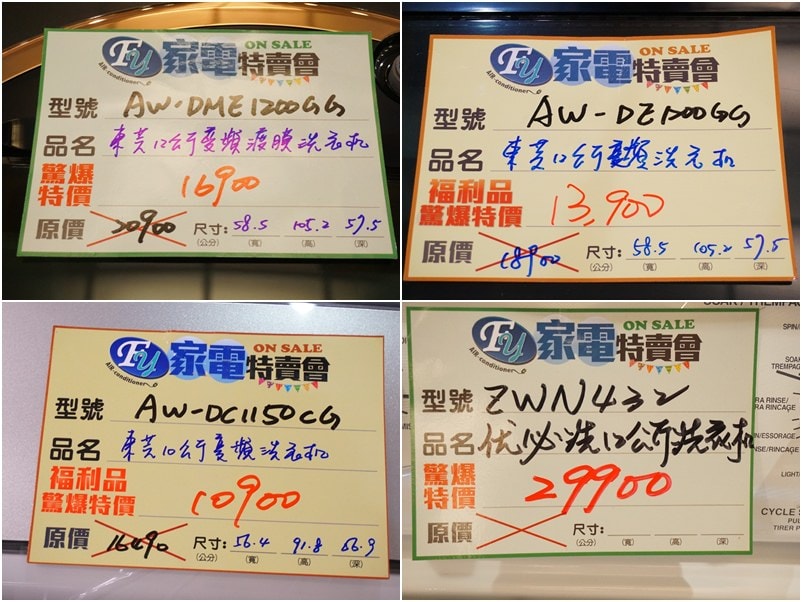 FY 家電特賣會 ON SALE
AIR-conditioner
型號 AW-DME1200GG
品名 東芝12公斤變頻渡膜洗衣机
驚爆特價 16900
原價 20900 尺寸:(公分) 58.5(寬) 105.2(高) 57.5(深)
FY 家電特賣會 ON SALE
AIR-conditioner
型號 AW-DE1200GG
品名 東芝12公斤變頻洗衣机
福利品
驚爆特價 13,900
原價 18900 尺寸:(公分) 58.5(寬) 105.2(高) 57.5(深)
FY 家電特賣會 ON SALE
AIR-conditioner
型號 AW-DC1150CG
品名 東芝10公斤變頻洗衣机
福利品
驚爆特價 10900
原價 16490 尺寸:(公分) 56.4(寬) 91.8(高) 56.9(深)
FY 家電特賣會 ON SALE
AIR-conditioner
型號 ZWN432
品名 优必洗12公斤洗衣机
驚爆特價 29900
原價 尺寸:(公分) (寬) (高) (深)
CYCLE